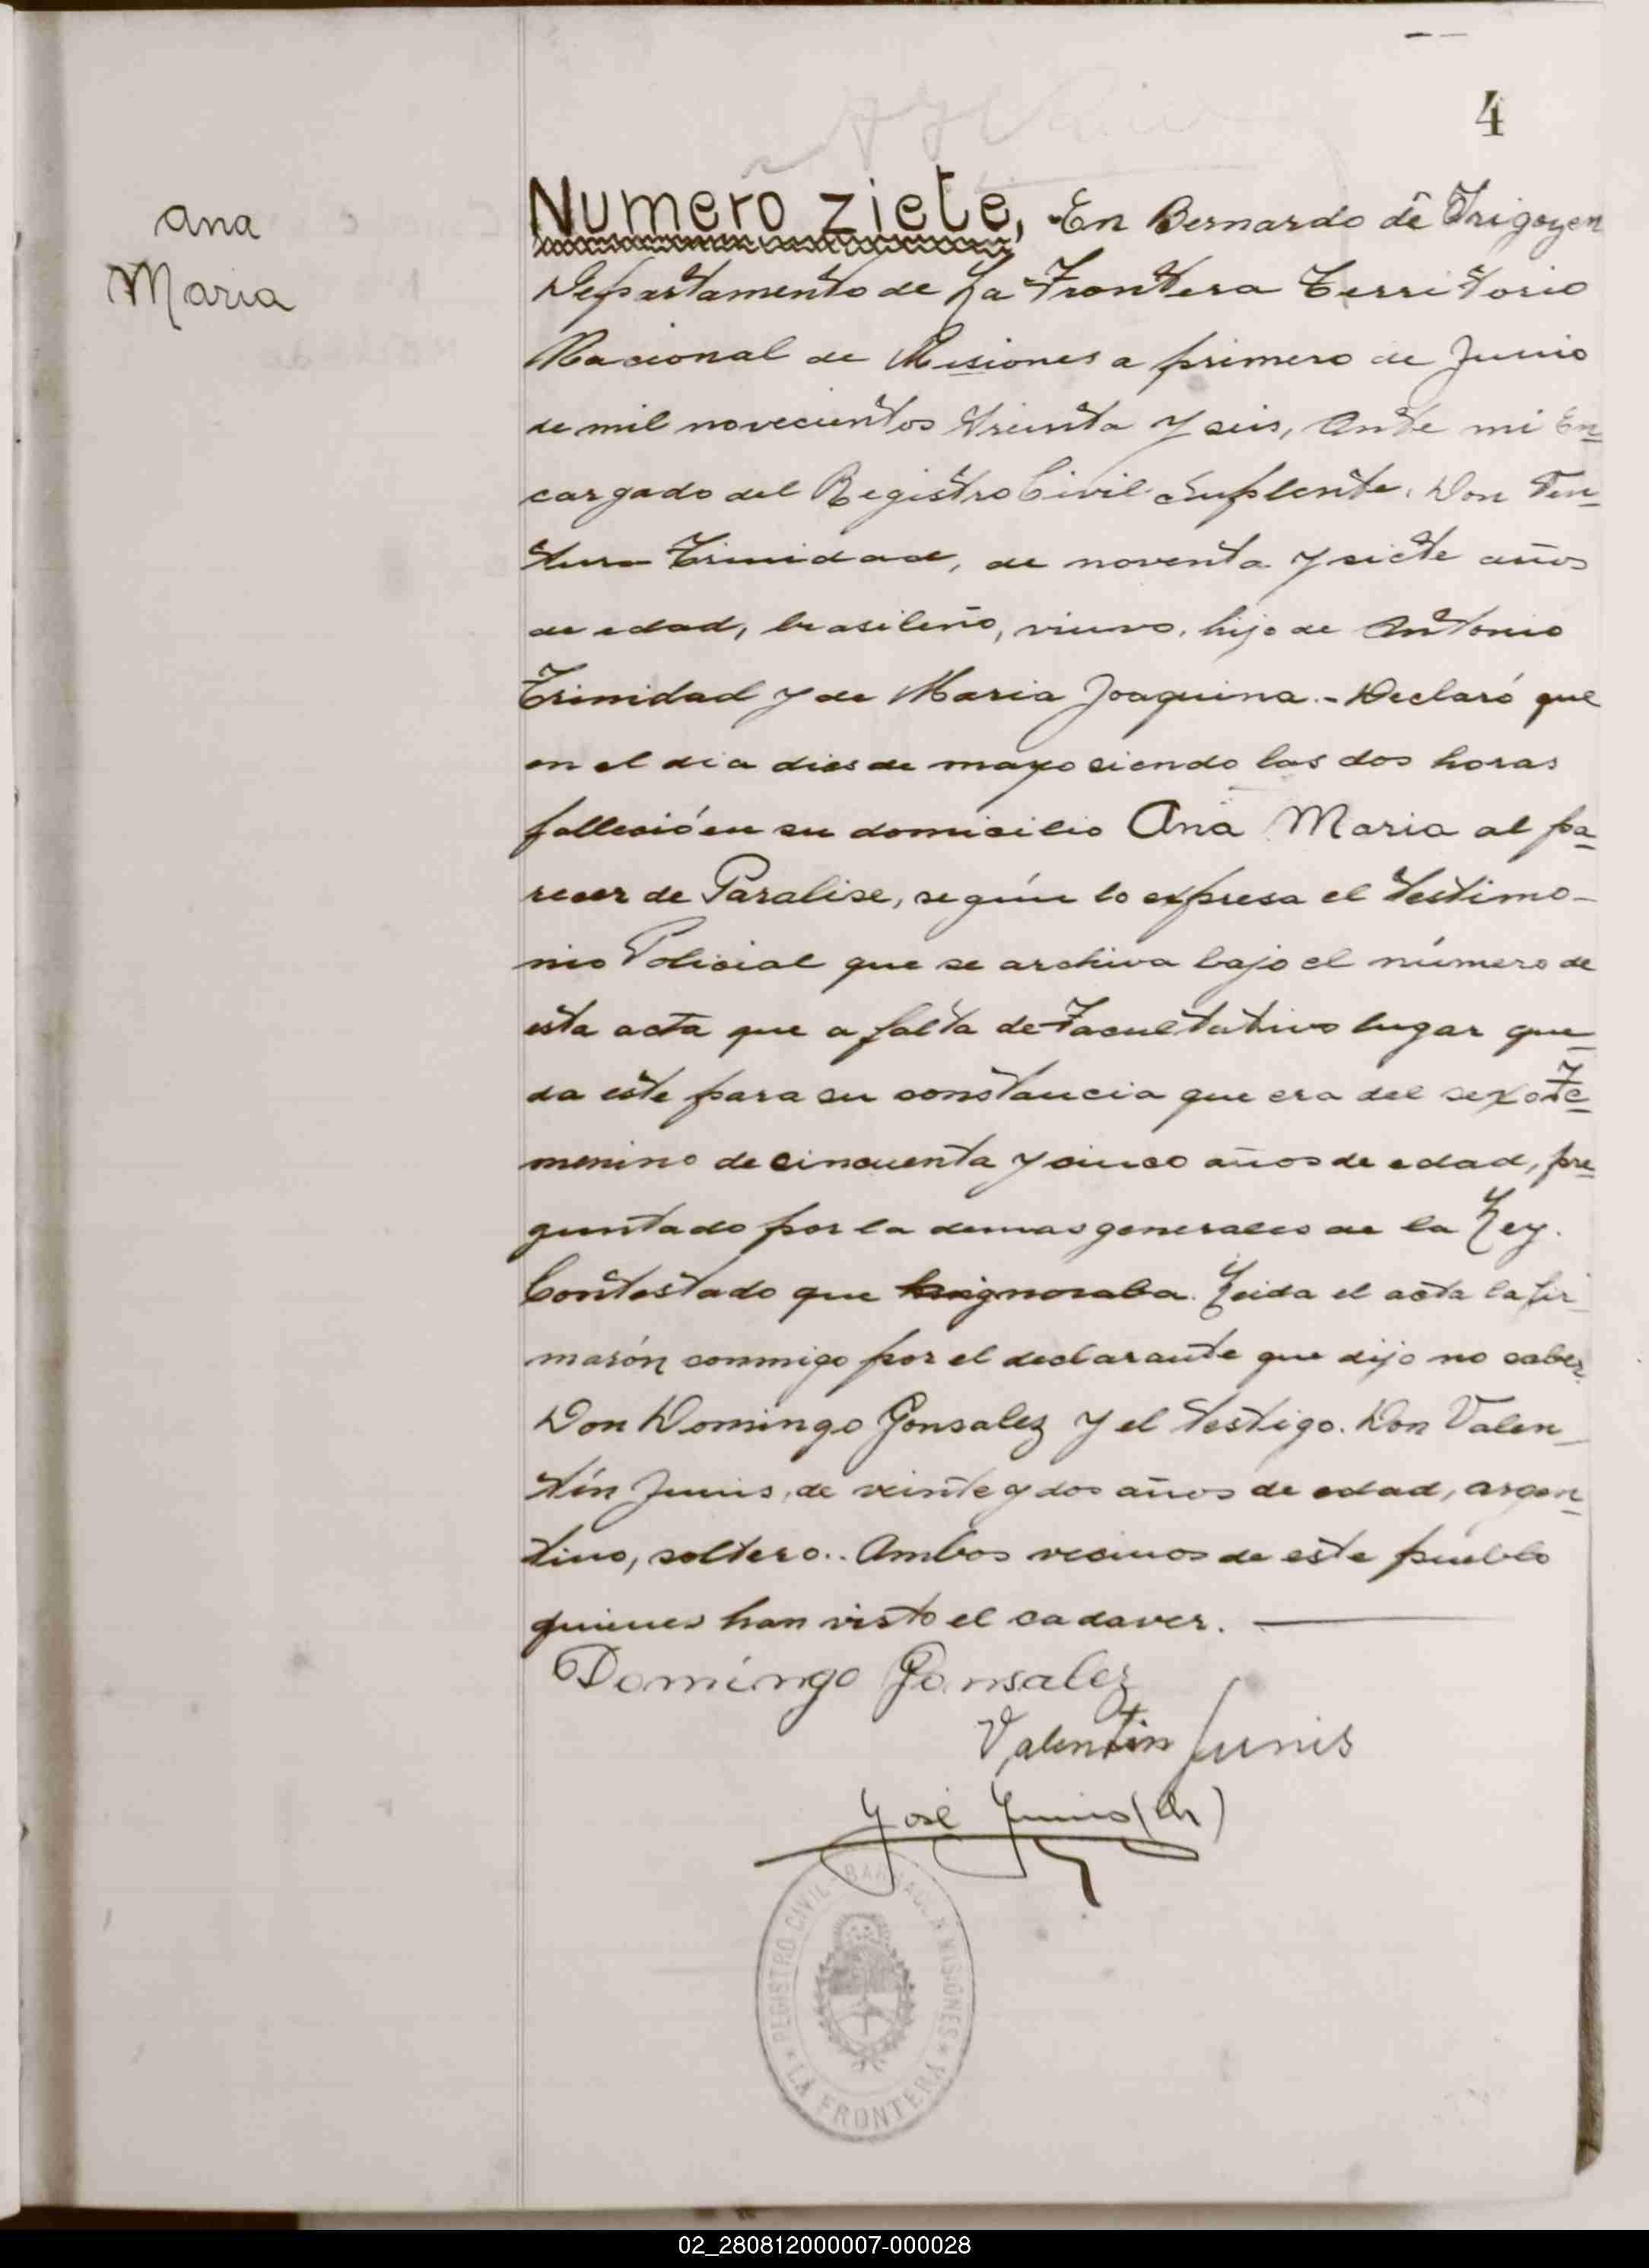 4
Ana
Maria
Numero ziete, En Bernardo de Irigoyen
Departamento de La Frontera Territorio
Nacional de Misiones a primero de Junio
de mil novecientos treinta y seis, Ante mi En-
cargado del Registro Civil Suplente, Don Ven-
tura Trinidad, de noventa y siete años
de edad, brasileño, viuvo, hijo de Antonio
Trinidad y de Maria Joaquina.- Declaró que
en el dia dies de mayo siendo las dos horas
falleció en su domicilio Ana Maria al pa-
recer de Paralise, según lo expresa el testimo-
nio Policial que se archiva bajo el número de
esta acta que a falta de Facultativo lugar que-
da este para su constancia que era del sexo Fe-
menino de cincuenta y cinco años de edad, pre-
guntado por la demas generales de la Ley.
Contestado que ignoraba. Leida el acta la fir-
marón conmigo por el declarante que dijo no saber
Don Domingo Gonsalez y el testigo. Don Valen-
tín Junis, de veinte y dos años de edad, argen-
tino, soltero.. Ambos vecinos de este pueblo
quienes han visto el cadaver.
Domingo Gonsalez
Valentin Junis
José Junis (h)
REGISTRO CIVIL BARRACON MISIONES
LA FRONTERA
02_280812000007-000028